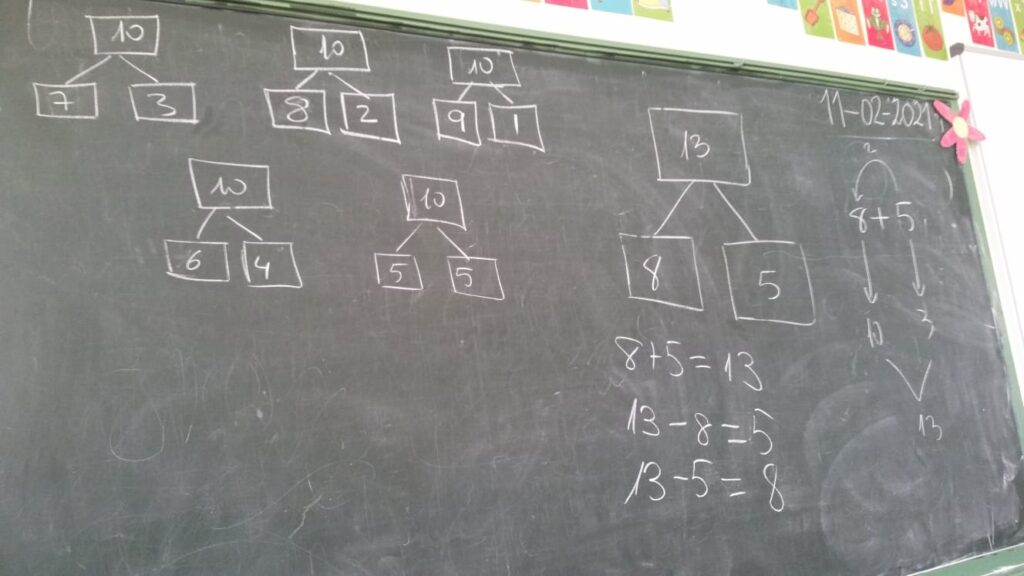 10 10 10
7 3 8 2 9 1
10 10
6 4 5 5
13
8 5
8+5=13
13-8=5
13-5=8
11-02-2021
2
8+5
10 3
13